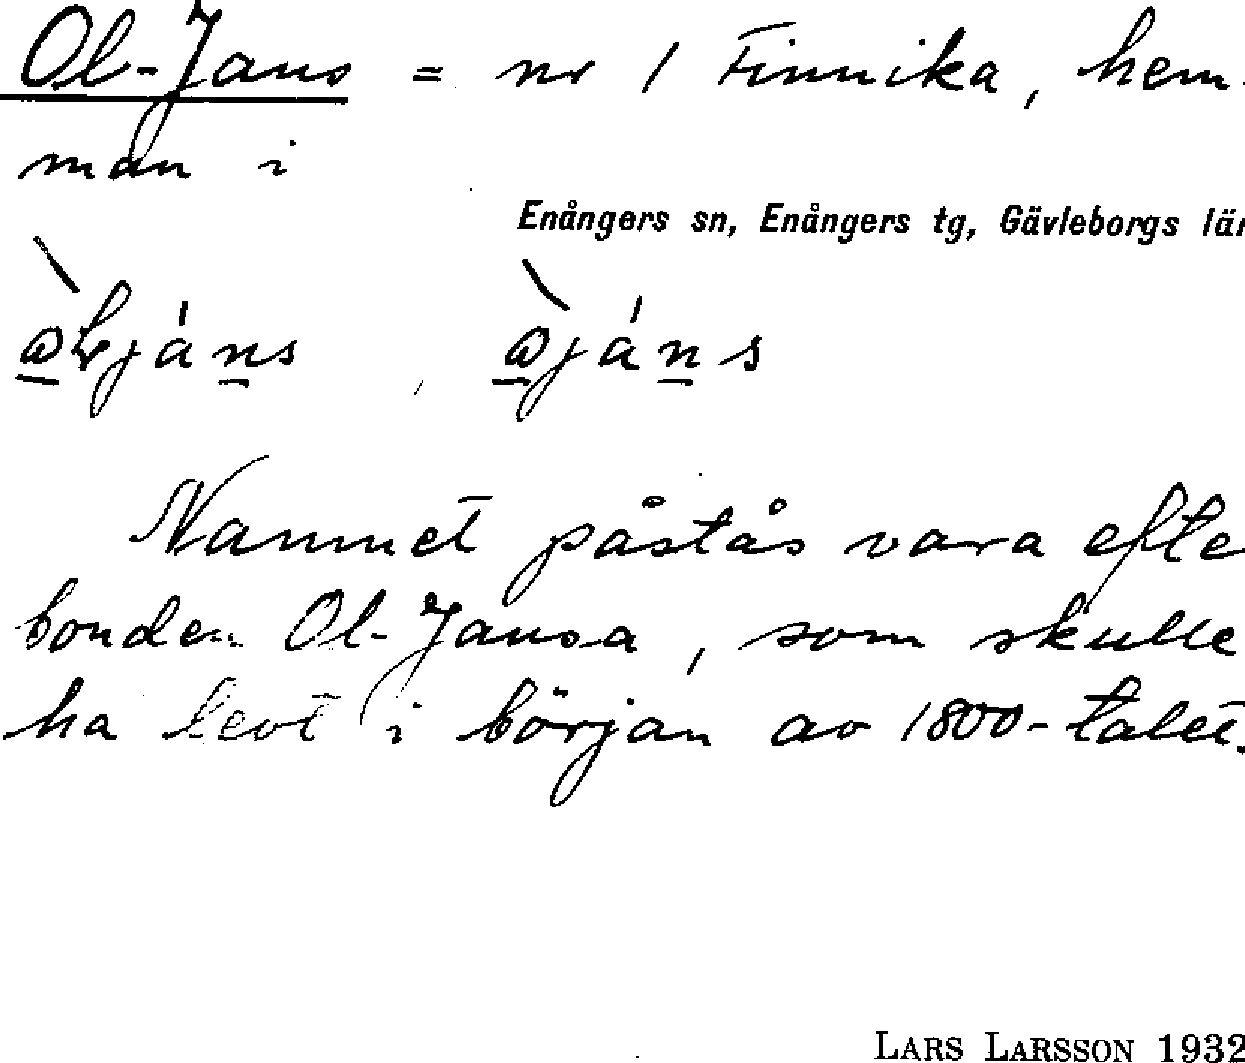 Ol-Jans = nr 1 Finnika, hem-
man i
Enångers sn, Enångers tg, Gävleborgs län
Namnet påstås vara efte
bonden Ol-Jansa, som skulle
ha levt i början av 1800-talet.
LARS LARSSON 1932